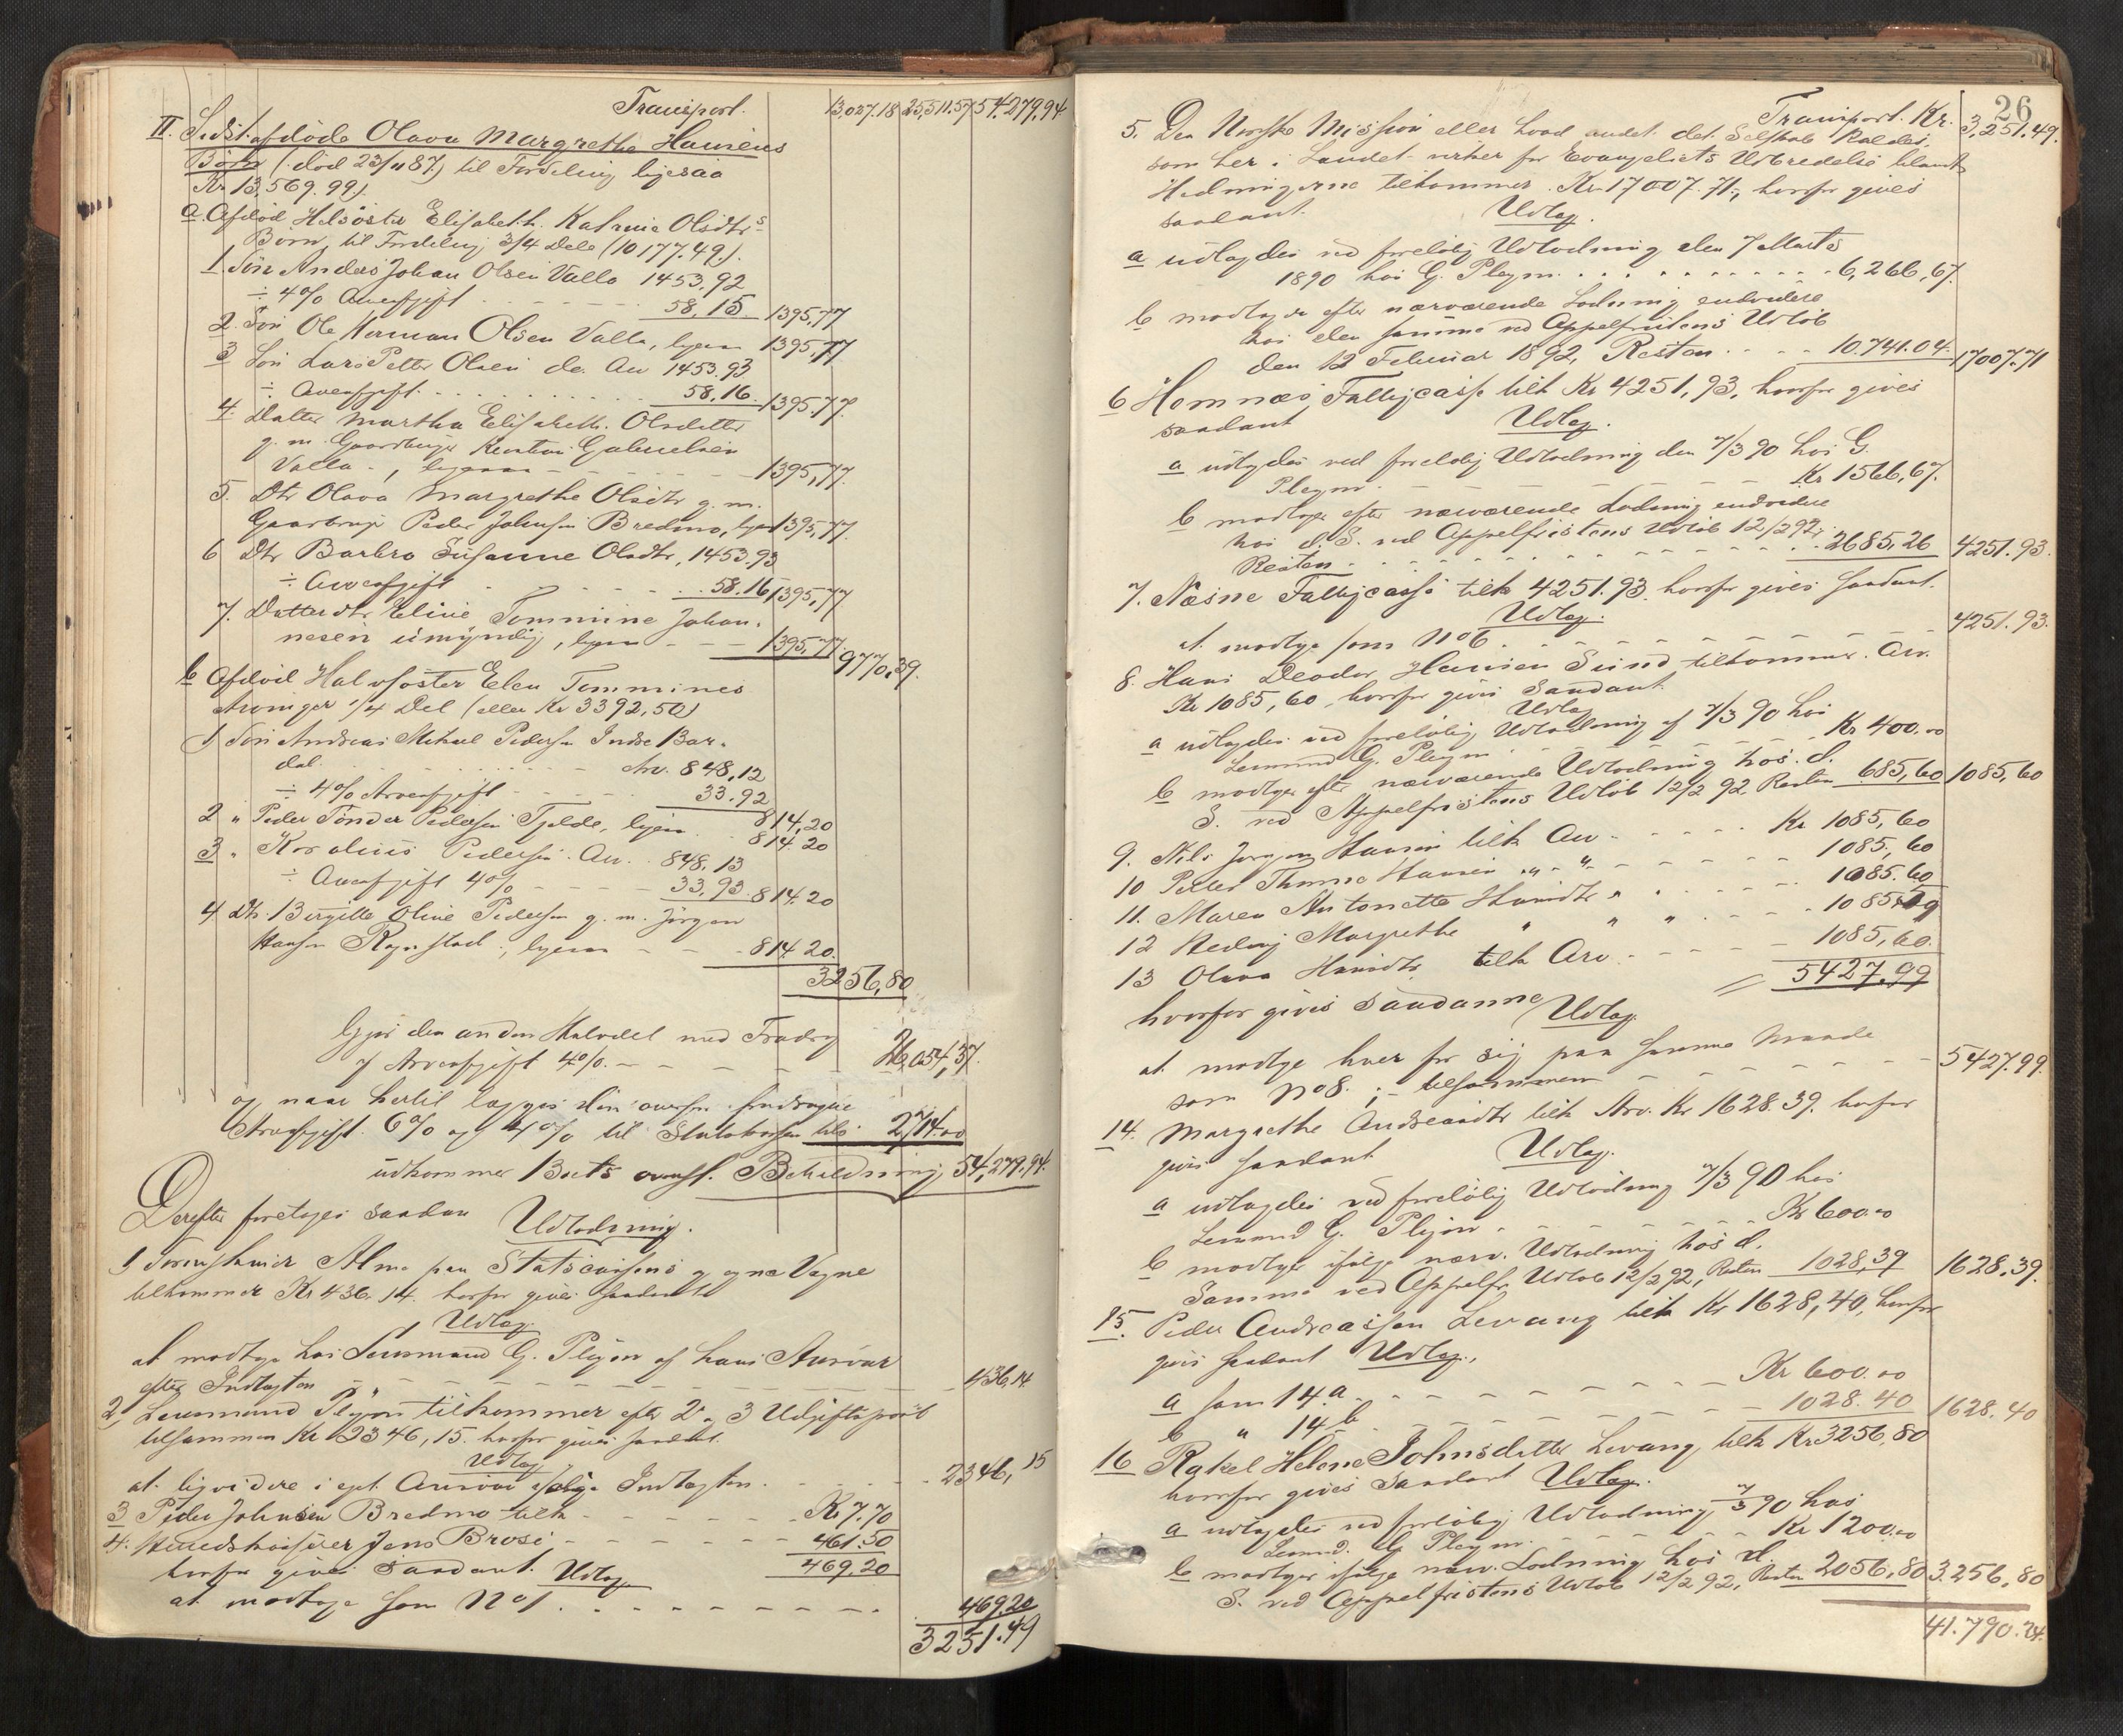 Transport. 13027.18 25511.57 54.279,94
II. Sidst afdöde Olava Margrethe Hansens
Börn (död 23/11 87.) til Fordeling ligesaa
Kr. 13,569.99).
a. Afdöd Helsöster Elisabeth Katrine Olsdtrs
Börn, til Fordeling 3/4 Dele (10177.49).
1. Sön Anders Johan Olsen Valla 1453,92
÷ 4% Arveafgift 58,15 1395,77
2. Sön Ole Herman Olsen Valla, ligesaa 1395,77
3 Sön Lars Petter Olsen do. Arv 1453.93
÷ Arveafgift 58,16 1395.77.
4. Datter Martha Elisabeth Olsdatter
g. m. Gaardbruger Gabrielsen
Valla, ligesaa 1395,77.
5. Dtr Olava Margrethe Olsdtr g. m.
Gaardbruger Peder Johnsen Bredmo, ligesaa 1395,77.
6 Dtr Barbro Susanne Olsdtr, 1453.93
÷ Arveafgift 58.16 1395,77
7. Datterdtr Eline Tommine Johan-
nesen umyndig, ligesaa 1395,77 9770,39.
b Afdöd Halvsöster Elen Tommines
Arvinger 1/4 Del (eller Kr 3392,50)
1 Sön Andreas Mikael Pedersen Indre Bar-
dal. Arv. 848,12
÷ 4% Arveafgift 33.92 814,20
2 " Peder Tönder Pedersen Tjelde, ligesaa 814.20
3 " Kornelius Pedersen. Arv. 848,13
÷ Arveafgift 4% 33,93 814.20
4 Dtr. Birgitte Oline Pedersen g. m. Jörgen
Hansen, ligesaa 814.20.
3256,80
Gjör den anden Halvdel med Fradrag
af Arveafgift 4%. 26,054,37.
og naar hertil lægges den ovenfor fradragne
Arveafgift 6% og 4% til Statskassen tils. 2714.00
udkommer Boets ovenst. Beholdning 54,279.94.
Derefter foretoges saadan Udlodning.
1 Sorenskriver Alme paa Statscassens og egne Vegne
tilkommer Kr 436.14. hvorfor gives saadant
Udlæg.
at modtage hos Lensmand G. Pleym af hans Ansvar
efter Indtægten 436,14.
2, Lensmand Pleym tilkommer efter 2 og 3 Udgiftspost
tilsammen Kr 2346,15. hvorfor gives saadant
Udlæg
at liqvidere i eget Ansvar ifölge Indtægten. 2346,15
3 Peder Johnsen Bredmo tilk Kr 7.70
4. Herredskasserer Jens Brose 461.50
hvorfor gives saadant Udlæg 469,20
at modtage som No 1. 469.20
3251.49
26
Transport. Kr. 3,251.49.
5. Den Norske Mission eller hvad andet det Selskab kaldes,
som her i Landet virker for Evangeliets Udbredelse blandt
Hedningerne tilkommer Kr 17007.71, hvorfor gives
saadant Udlæg.
a udlagdes ved foreløbig Udlodning den 7 Marts
1890 hos G. Pleym 6,266,67.
b modtages efter nærværende Lodning endvidere
hos den samme ved Appelfristens Udlöb
den 12 Februar 1892, Resten 10.741.04. 17007.71
6 Hemnæs Fattigcasse tilk Kr 4251,93, hvorfor gives
saadant Udlæg.
a udlagdes ved foreløbig Udlodning den 7/3 90 hos G.
Pleym Kr 1566,67.
b modtager efter nærværende Lodning endvidere
hos d. S. ved Appelfristens Udlöb 12/2 92,
Resten 2685,26 4251.93.
7. Næsne Fattigcasse tilk 4251.93. hvorfor gives saadant
Udlæg.
at modtage som No 6 4251.93.
8. Hans Deodor Hansen Sund tilkommer Arv.
Kr 1085,60, hvorfor gives saadant
Udlæg
a udlagdes ved foreløbig Udlodning af 7/3 90 hos
Lensmand G. Pleym Kr 400.00
b modtager efter nærværende Udlodning hos d.
S. ved Appelfristens Udlöb 12/2 92 Resten 685,60 1085,60
9. Nils Jörgen Hansen tilk Arv Kr 1085,60
10 Peder Thinus Hansen " " 1085,60
11. Maren Antonette Hansdtr " 1085.60
12 Hedvig Margrethe " " " 1085.59
13 Olava Hansdtr tilk Arv 1085,60.
5427.99
hvorfor gives saadanne Udlæg.
at modtage hver for sig paa samme Maade
som No 8. ; tilsammen 5427.99.
14. Margrethe Andreasdtr tilk Arv. Kr 1628.39. hvorfor
gives saadant Udlæg.
a udlagdes ved foreløbig Udlodning 7/3 90 hos
Lensmand G. Pleym Kr 600.00
b modtager ifölge nærv. Udlodning hos d.
Samme ved Appelfr. Udlöb 12/2 92, Resten 1028,39 1628.39.
15. Peder Andreassen Levang tilk Kr 1628,40, hvorfor
gives saadant Udlæg.
a som 14.a Kr 600.00
b " 14 b 1028.40 1628.40
16 Rakel Helene Johnsdatter Levang tilk Kr 3256,80
hvorfor gives saadant Udlæg.
a udlagdes ved foreløbig Udlodning 7/3 90 hos
Lensmd. G Pleym Kr 1200.00
b modtager ifölge nærv. Lodning hos d.
S. ved Appelfristens Udlöb 12/2 92, Resten 2056,80 3.256,80
41.790.24.